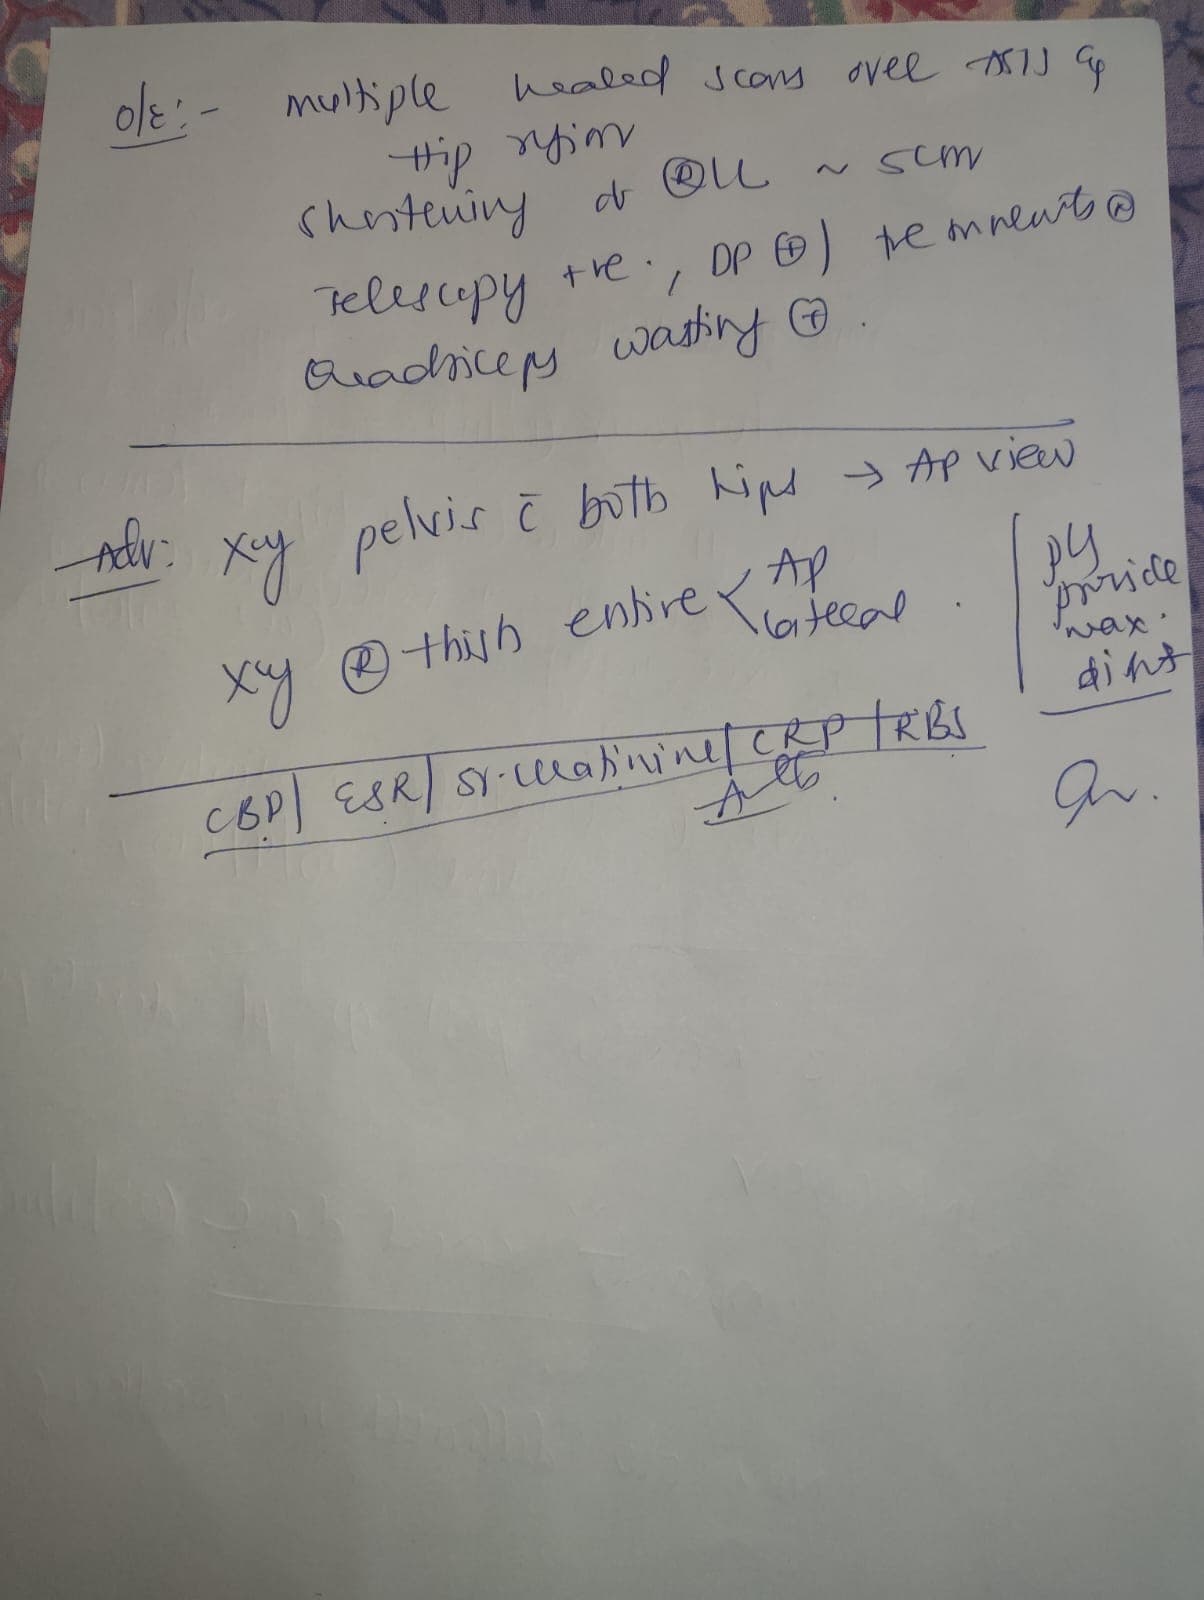 O/E:- multiple healed scars over ASIS &
Hip region
Shortening of Ⓡ LL ~ 5cm
Telescopy +ve., DP ⊕)
Quadriceps wasting ⊕.
Adv: Xray pelvis c̄ both hips → AP view
Xray Ⓡ thigh entire < AP
lateral.
Pls
provide
max.
disnt
CBP| ESR| Sr. creatinine| CRP | RBS